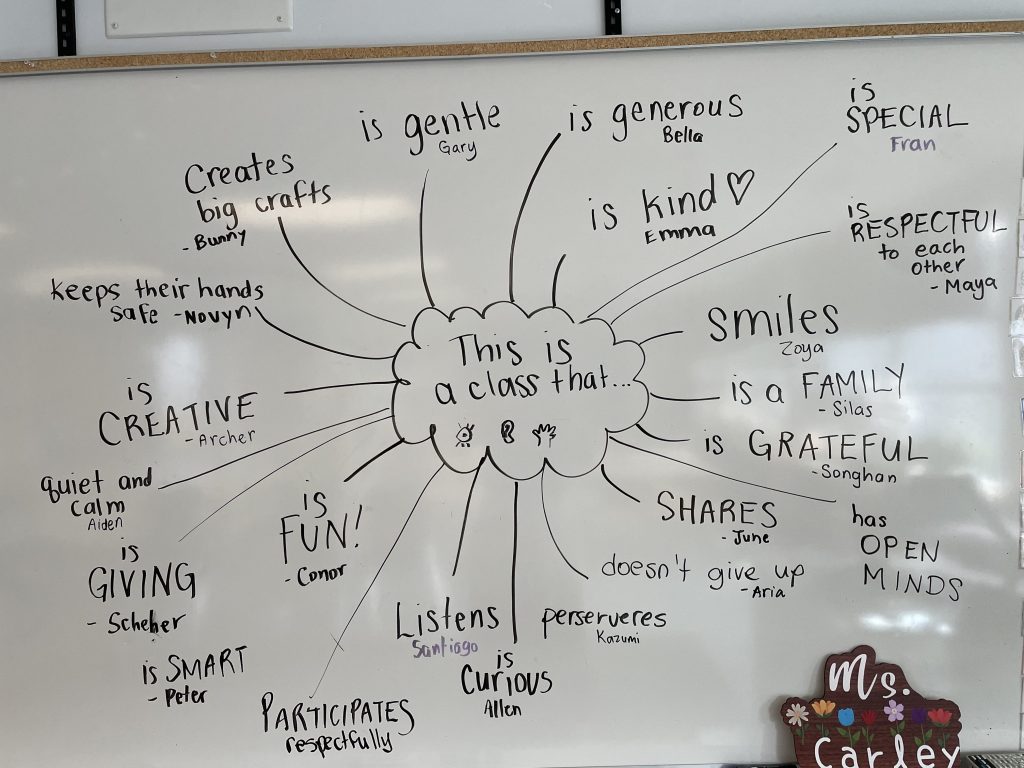 This is
a class that...
is gentle
Gary
is generous
Bella
is
SPECIAL
Fran
is kind♡
Emma
is
RESPECTFUL
to each
other
- Maya
smiles
Zoya
is a FAMILY
- Silas
is GRATEFUL
- Songhan
has
OPEN
MINDS
SHARES
- June
doesn't give up
- Aria
perserveres
Kazumi
is
Curious
Allen
Listens
Santiago
PARTICIPATES
respectfully
is SMART
- Peter
is
FUN!
- Conor
is
GIVING
- Scheher
quiet and
calm
Aiden
is
CREATIVE
- Archer
keeps their hands
safe - Novyn
Creates
big crafts
- Bunny
Ms.
Carley